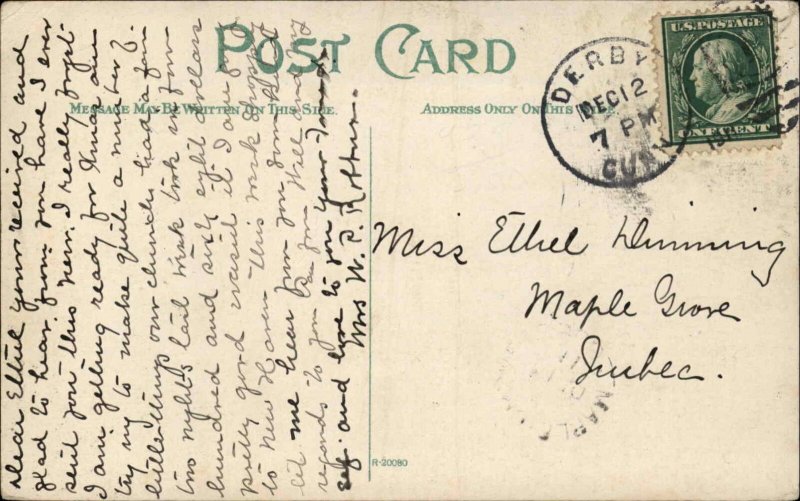 POST CARD
MESSAGE MAY BE WRITTEN ON THIS SIDE.
ADDRESS ONLY ON THIS
DERBY
DEC 12
7 PM
CONN
U.S. POSTAGE
ONE CENT
Dear Ethel yours received and
glad to hear from you have I ever
sent you this view. I really forget
I am getting ready for Xmas am
trying to make quite a number of
little things our church had a fair
two nights last week took in four
hundred and sixty eight dollars
pretty good wasn't it I am going
to New Haven this week
let me hear from you
regards to you from Will and my
self. and love to you yours
Mrs W. P.
Miss Ethel Dinning
Maple Grove
Quebec.
MAPLE
R-20080